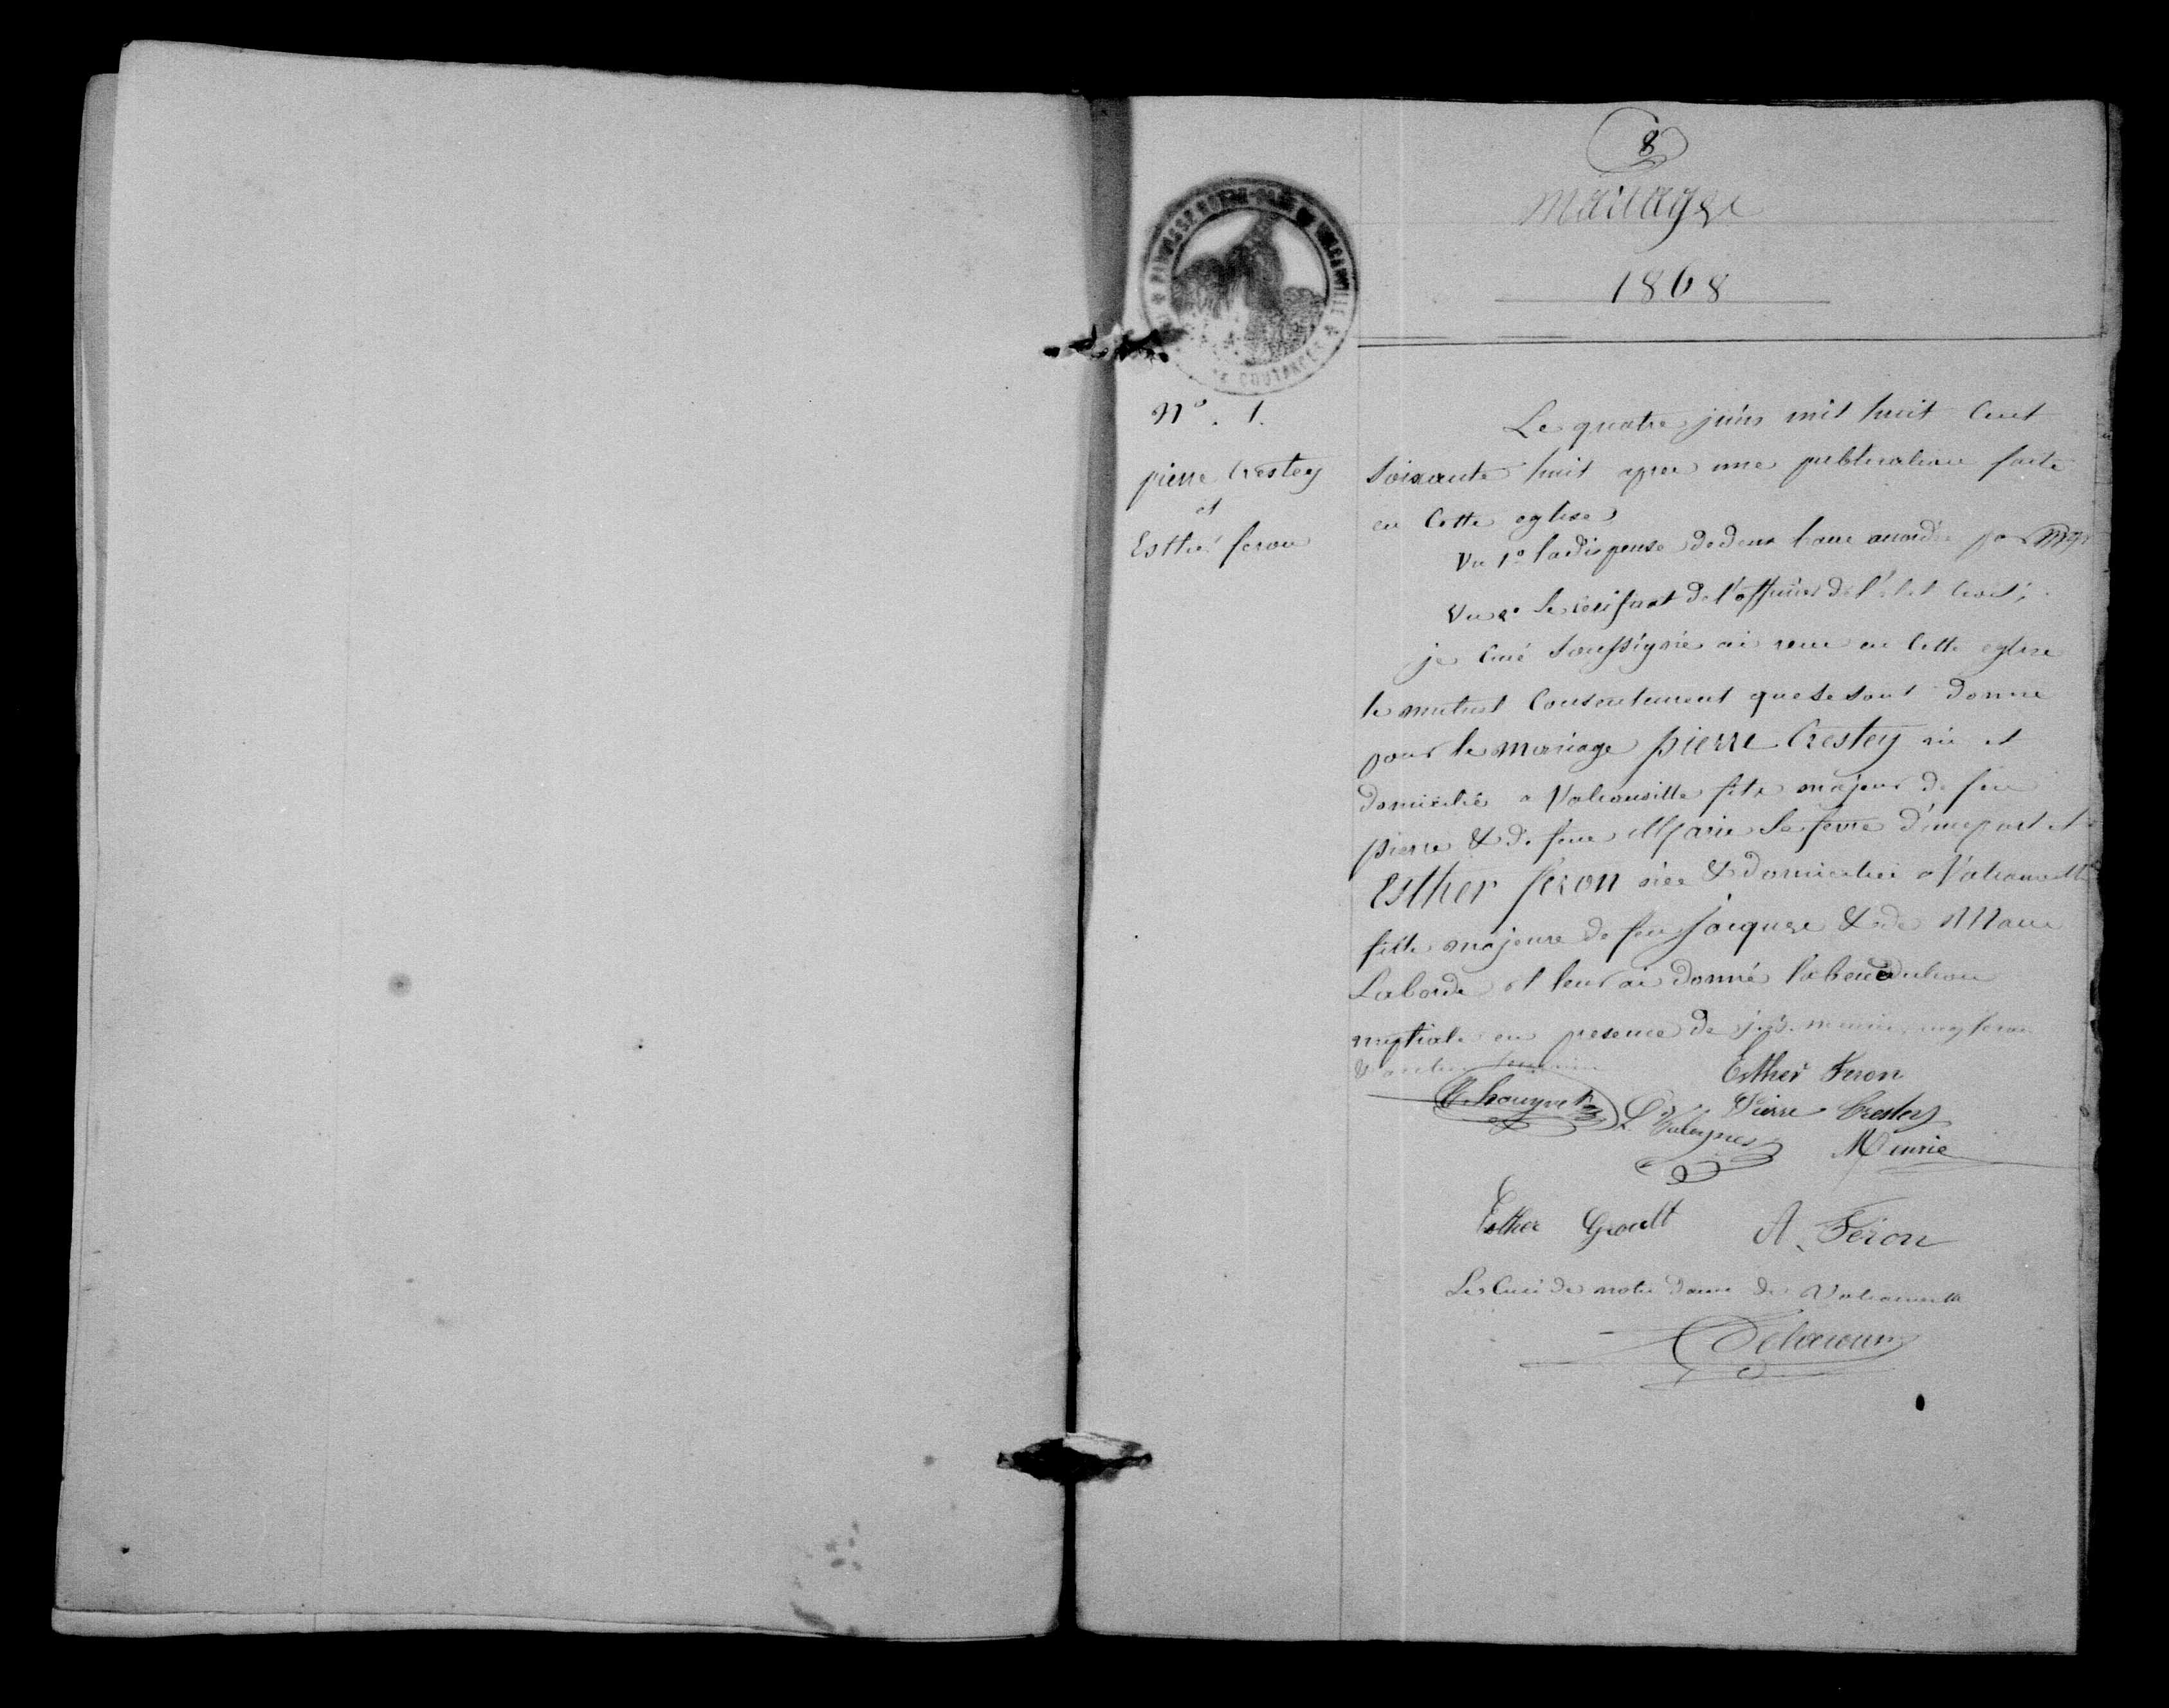 8
mariages
1868
PAROISSE NOTRE-DAME DE VALCANVILLE
DE COUTANCES
N° . 1.
pierre Crestey
et
Esther feron
Le quatre juin mil huit Cent
Soixante huit apres une publication faite
en Cette eglise
Vu 1° la dispense de deux bans accordée par Mgr
Vu 2° le certificat de l'officier de l'etat Civil;
je Curé Soussigné ai recu en Cette eglise
le mutuel Consentement que se sont donné
pour le mariage pierre Crestey né et
domicilié a Valcanville fils majeur de feu
pierre & de feue Marie le ferre d'une part et
Esther feron née & domiciliée a Valcanville
fille majeure de feu Jacques & de Marie
Laborde et leur ai donné la benediction
nuptiale en presence de
Esther Feron
Pierre Crestey
Meurie
Esther Groult A. Féron
Le Curé de notre dame de Valcanville
Delacour